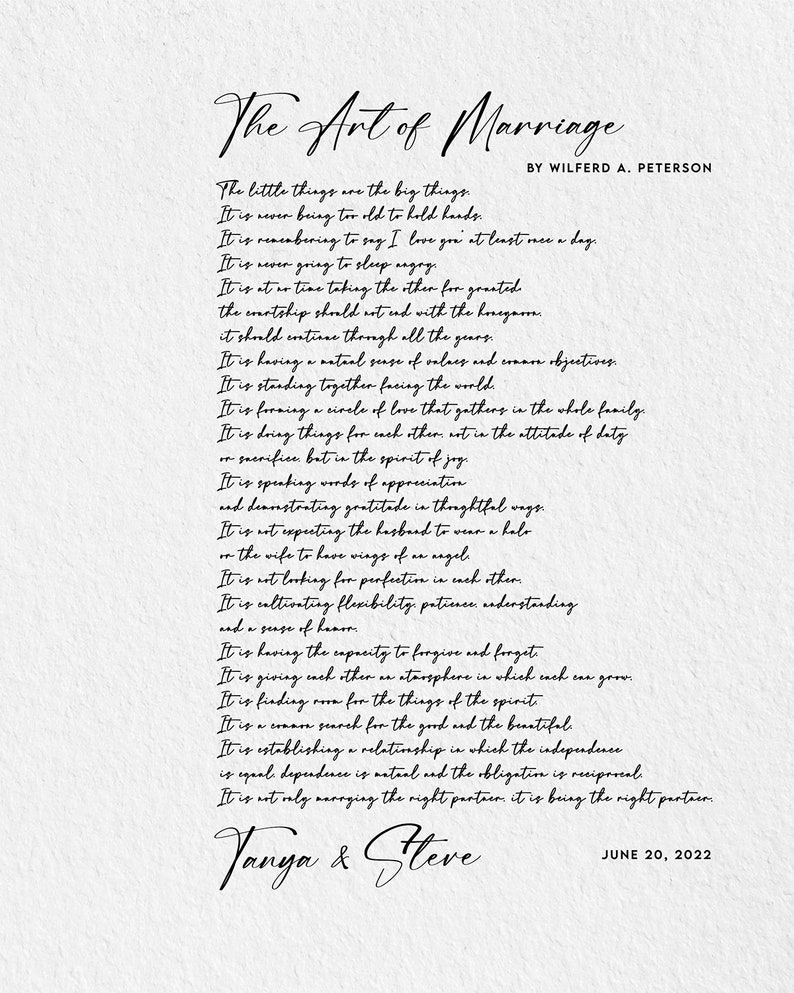 The Art of Marriage
BY WILFERD A. PETERSON
The little things are the big things.
It is never being too old to hold hands.
It is remembering to say I love you' at least once a day.
It is never going to sleep angry.
It is at no time taking the other for granted,
the courtship should not end with the honeymoon,
it should continue through all the years.
It is having a mutual sense of values and common objectives.
It is standing together facing the world.
It is forming a circle of love that gathers in the whole family.
It is doing things for each other, not in the attitude of duty
or sacrifice, but in the spirit of joy.
It is speaking words of appreciation
and demonstrating gratitude in thoughtful ways.
It is not expecting the husband to wear a halo
or the wife to have wings of an angel.
It is not looking for perfection in each other.
It is cultivating flexibility, patience, understanding
and a sense of humor.
It is having the capacity to forgive and forget.
It is giving each other an atmosphere in which each can grow.
It is finding room for the things of the spirit.
It is a common search for the good and the beautiful.
It is establishing a relationship in which the independence
is equal, dependence is mutual and the obligation is reciprocal.
It is not only marrying the right partner, it is being the right partner.
Tanya & Steve
JUNE 20, 2022